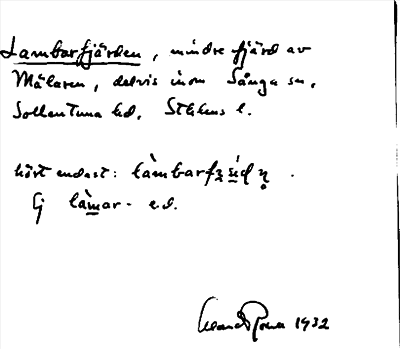 Lambarfjärden, mindre fjärd av
Mälaren, delvis inom Sånga sn,
Sollentuna hd, Sthlms l.
hört endast: làmbarfʒ
Ej làmar- e.d.
1932